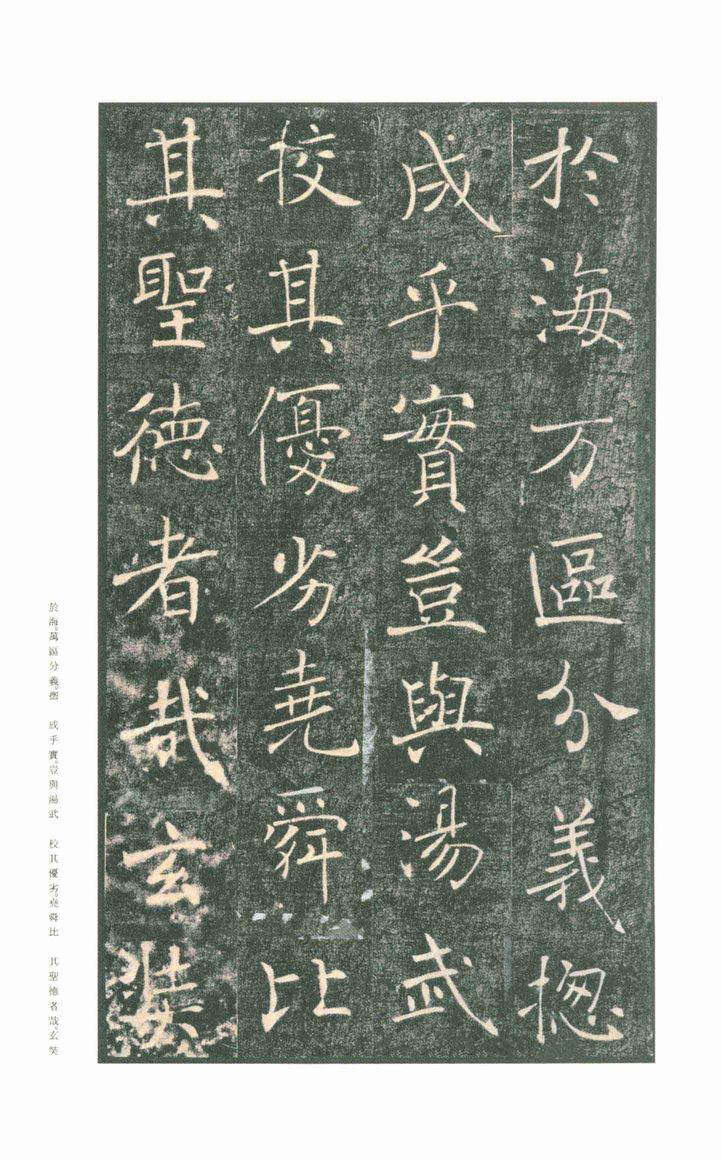 於海万區分義揔
成乎實豈與湯武
挍其優劣堯舜比
其聖徳者哉玄奘
於海。萬區分義。摠　成乎實。豈與湯武　校其優劣。堯舜比　其聖徳者哉。玄奘